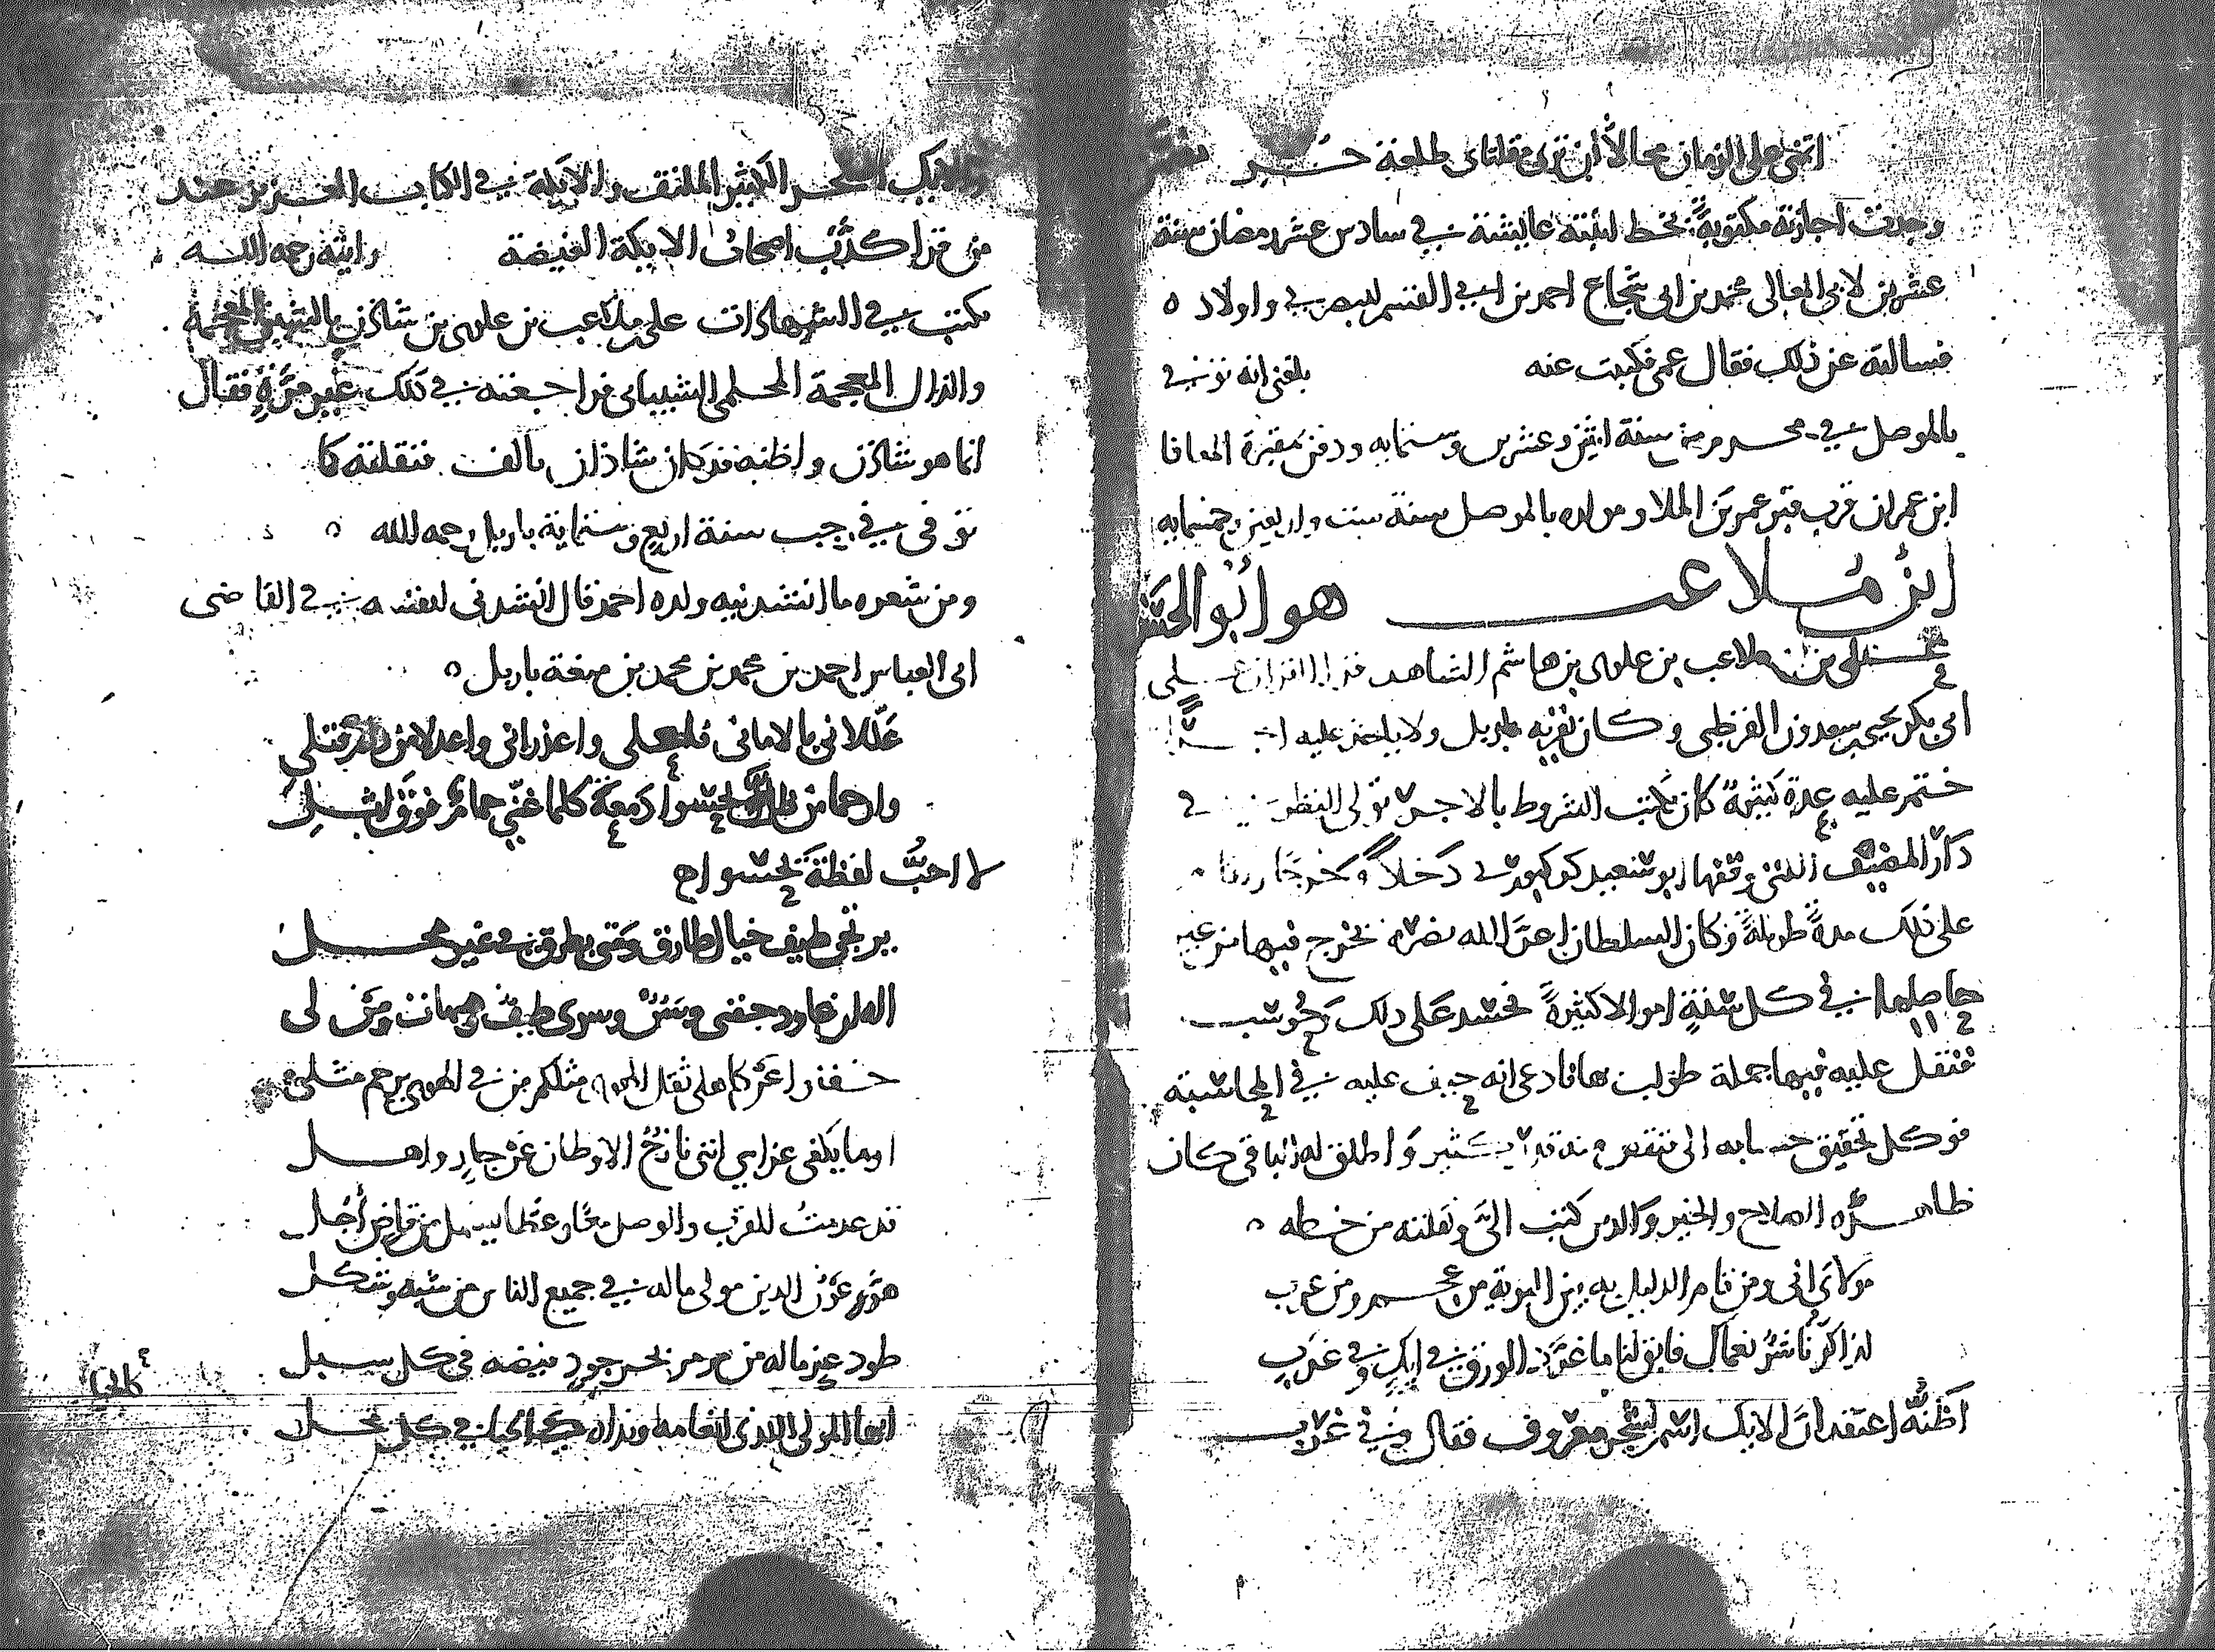 اتمنى على الزمان محالاً أن ترى مقلتاى طلعة حُر
وجدت اجازته مكتوبةً بخط ابنته عايشة في سادس عشر رمضان سنة
عشرين لابى المعالى محمد بن ابى شجاع احمد بن ابى القسم لبصرى واولاد ه
فسالته عن ذلك فقال عمى فكتبت عنه بلغنى انه توفي
بالموصل في محرم من سنة اثنين وعشرين وستمايه ودفن بمقبرة المعافا
ابن عمران قرب قبر عمر بن الملا ومولده بالموصل سنة ست واربعين وخمسمايه
ابنُ مُلاعب هو أبو الحسن
على بن ملاعب بن علوى بن هاشم الشاهد قرا القران على
ابى بكر يحيى بن سعدون القرطبى وكان يقرئه باربل ولا ياخذ عليه
ختم عليه عدة كثيرة كان يكتب الشروط بالاجرة تولى النظر في
دار المضيف التى وقفها ابو سعيد كوكبورى دخلاً وخرجًا
على ذلك مدةً طويلةً وكان السلطان اعز الله نصره يخرج فيها من
حاصلها في كل سنةٍ اموالا كثيرةً فحسد على ذلك وحُوسب
فثقل عليه فيها جملة طولب بها فادعى انه حيف عليه في المحاسبة
فوكل تحقيق حسابه الى واطلق له الباقى كان
ظاهره الصلاح والخير والدين كتب الىّ ونقلته من خطه ه
مولاى انى ومن قام الدليل به بين البرية من عجم ومن عرب
لذاكرٌ ناشرٌ نعماك فابق لنا ما غرّد الورق في ايكٍ وفي غربِ
اظنُّه اعتقد انّ الايك اسم لشجر معروف فقال وفي غرب
والايك الشجر الكثير الملتف والايكة في الكتاب العزيز عند
من قرا كذّب اصحاب الايكة الغيضة رايته رحمه الله
يكتب في الشهادات على بن ملاعب بن علوى بن شاذن بالشين المعجمة
والذال المعجمة المحلمى الشيبانى فراجعته في ذلك غير مرّةٍ فقال
انما هو شاذن واظنه قد كان شاذان بالف فنقلته كا
توفى في رجب سنة اربع وستماية باربل رحمه الله ه
ومن شعره ما انشدنيه ولده احمد قال انشدنى لنفسه في القاضى
ابى العباس احمد بن محمد بن محمد بن صفة باربل ه
علّلانى بالامانى فلعلى واعذرانى واعدلا من رام قتلى
وارحما من ظل يحسوا دمعةً كلما غنّى حمامٌ فوق اثلِ
لا احبُّ لفظة يحسوا ه
يرتجى طيف خيال طارق ومتى يطرق في غير محل
اله ان عاود جفنى وسَنٌ وسرى طيفٌ وهيهات ومن لى
مثلكم من في الهوى يرحم مثلى
اوما يكفى عذابى اننى نازحُ الاوطان عن جارٍ واهل
قد عدمتُ للقرب والوصل معًا
هو عون الدين مولى ماله في جميع الناس من شبه وشكل
طود عز ماله من مرمر بحر جودٍ فيضه في كل سبل
ايها المولى الذى انعامه ونداه كالحيا في كل محل
كالحيا